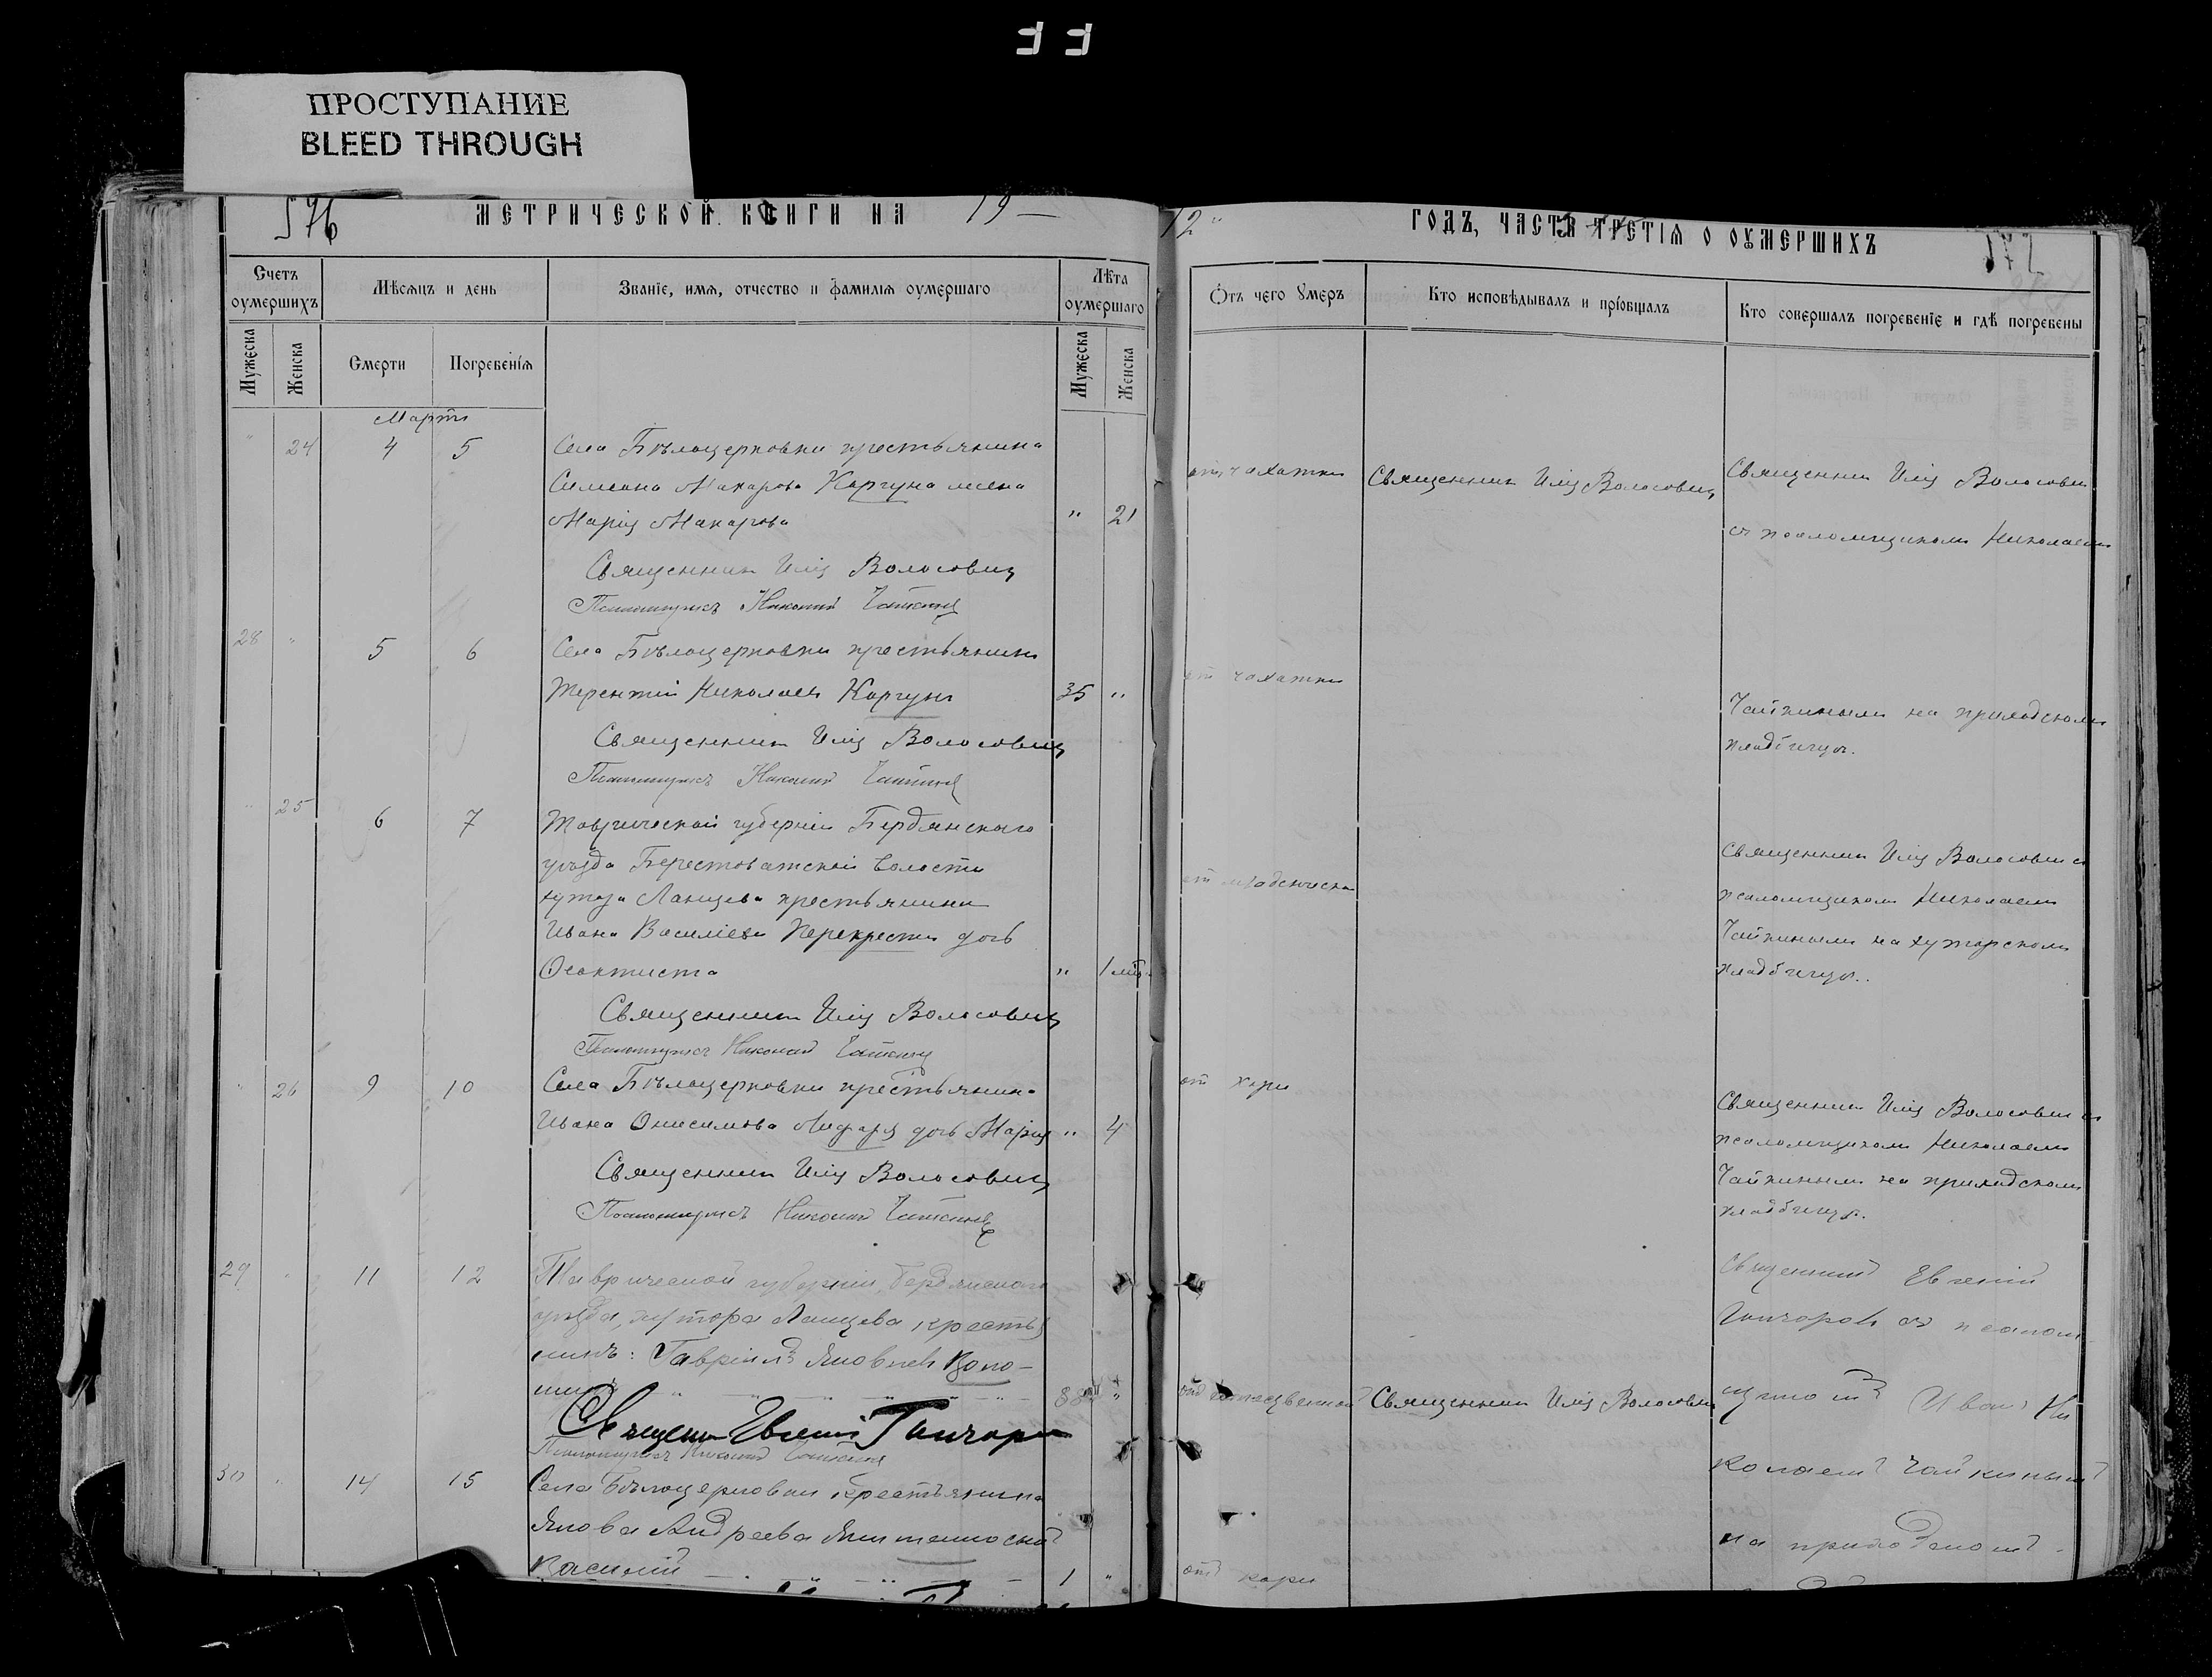 ПРОСТУПАНИЕ
BLEED THROUGH
576
МЕТРИЧЕСКОЙ КНИГИ НА 19—
12" ГОДЪ, ЧАСТЬ ТРЕТІЯ О ОУМЕРШИХЪ
Счетъ оумершихъ
Мѣсяцъ и день
Званіе, имя, отчество и фамилія оумершаго
Лѣта оумершаго
Отъ чего умеръ
Кто исповѣдывалъ и пріобщалъ
Кто совершалъ погребеніе и гдѣ погребены
Мужеска
Женска
Смерти
Погребенія
Мужеска
Женска
Мартъ
" 24 4 5 Села Бѣлоцерковки крестьянина
Симеона Макарова Коргуна жена
Марія Макарова " 21
отъ чахотки
Священникъ Илія Волосовичъ
Священникъ Илія Волосович
съ псаломщикомъ Николаемъ
Священникъ Илія Волосовичъ
Псаломщикъ Николай Чайкинъ
28 " 5 6 Села Бѣлоцерковки крестьянинъ
Терентій Николаевъ Коргунъ 35 "
отъ чахотки
Чайкинымъ на приходскомъ
кладбищѣ.
Священникъ Илія Волосовичъ
Псаломщикъ Николай Чайкинъ
" 25 6 7 Таврической губерніи Бердянскаго
уѣзда Берестоватской волости
хутора Ланцева крестьянина
Ивана Василіева Перекрести дочь
Феоктиста " 1 мѣс.
отъ младенческ
Священникъ Илія Волосович съ
псаломщикомъ Николаемъ
Чайкинымъ на хуторскомъ
кладбищѣ.
Священникъ Илія Волосовичъ
Псаломщикъ Николай Чайкинъ
" 26 9 10 Села Бѣлоцерковки крестьянина
Ивана Онисимова дочь Марія " 4
отъ кори
Священникъ Илія Волосович съ
псаломщикомъ Николаемъ
Чайкинымъ на приходскомъ
кладбищѣ.
Священникъ Илія Волосовичъ
Псаломщикъ Николай Чайкинъ
29 " 11 12 Таврической губерніи, Бердянскаго
уѣзда, хутора Ланцева крестья
нинъ: Гавріилъ Яковлев
88 "
Священникъ Илія Волосович
Священникъ Евгеній
Гончаровъ съ псалом-
щикомъ Иваномъ Ни
колаемъ Чайкинымъ
на приходскомъ
Священ Евгеній Гончаров
Псаломщикъ Николай Чайкинъ
30 " 14 15 Села Бѣлоцерковки крестьянина
Якова Андреева сынъ
Василій 1 "
отъ кори